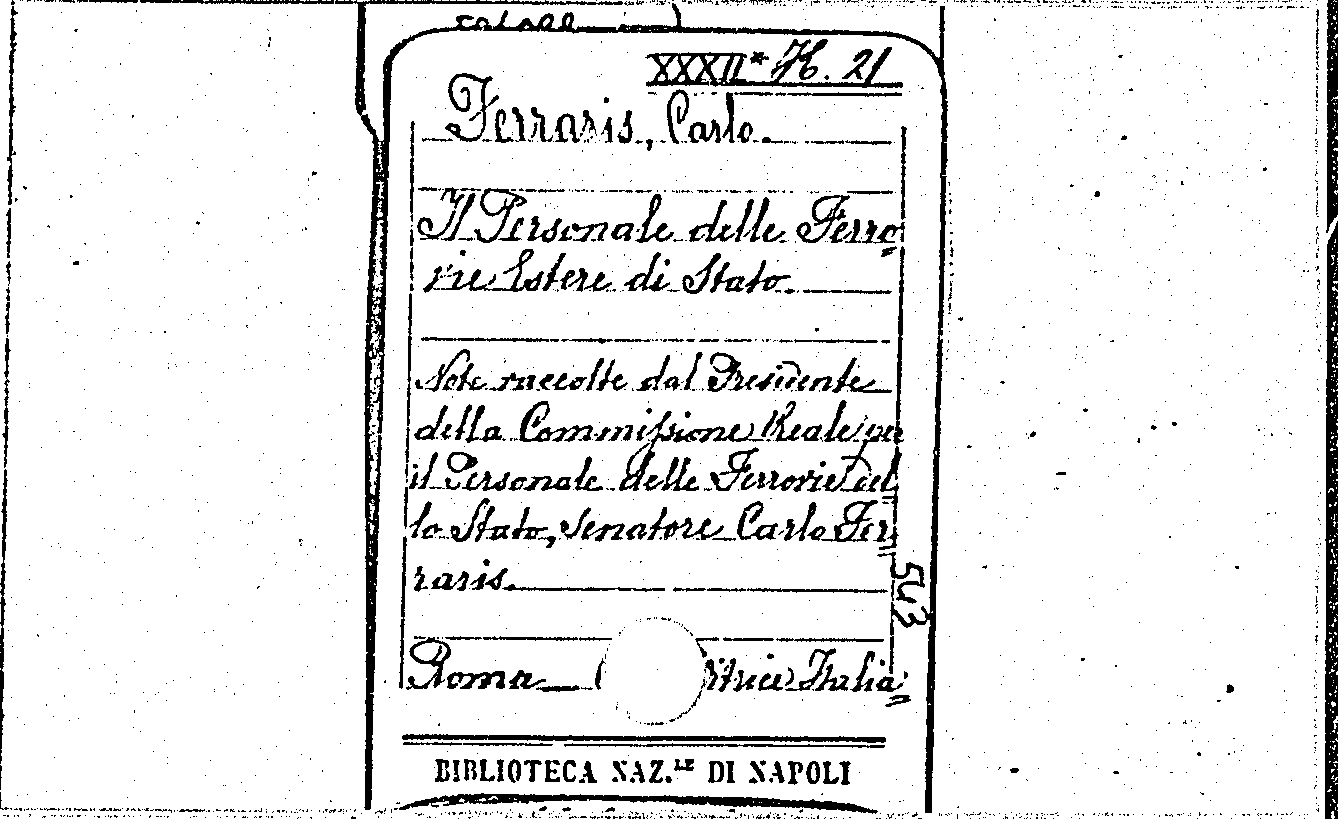 XXXII* H. 21
Ferraris, Carlo.
Il Personale delle Ferro=
vie Estere di Stato.
Note raccolte dal Presidente
della Commissione Reale per
il Personale delle Ferrovie del=
lo Stato, Senatore Carlo Fer=
raris.
543
Roma — itrice Italia=
BIBLIOTECA NAZ.LE DI NAPOLI